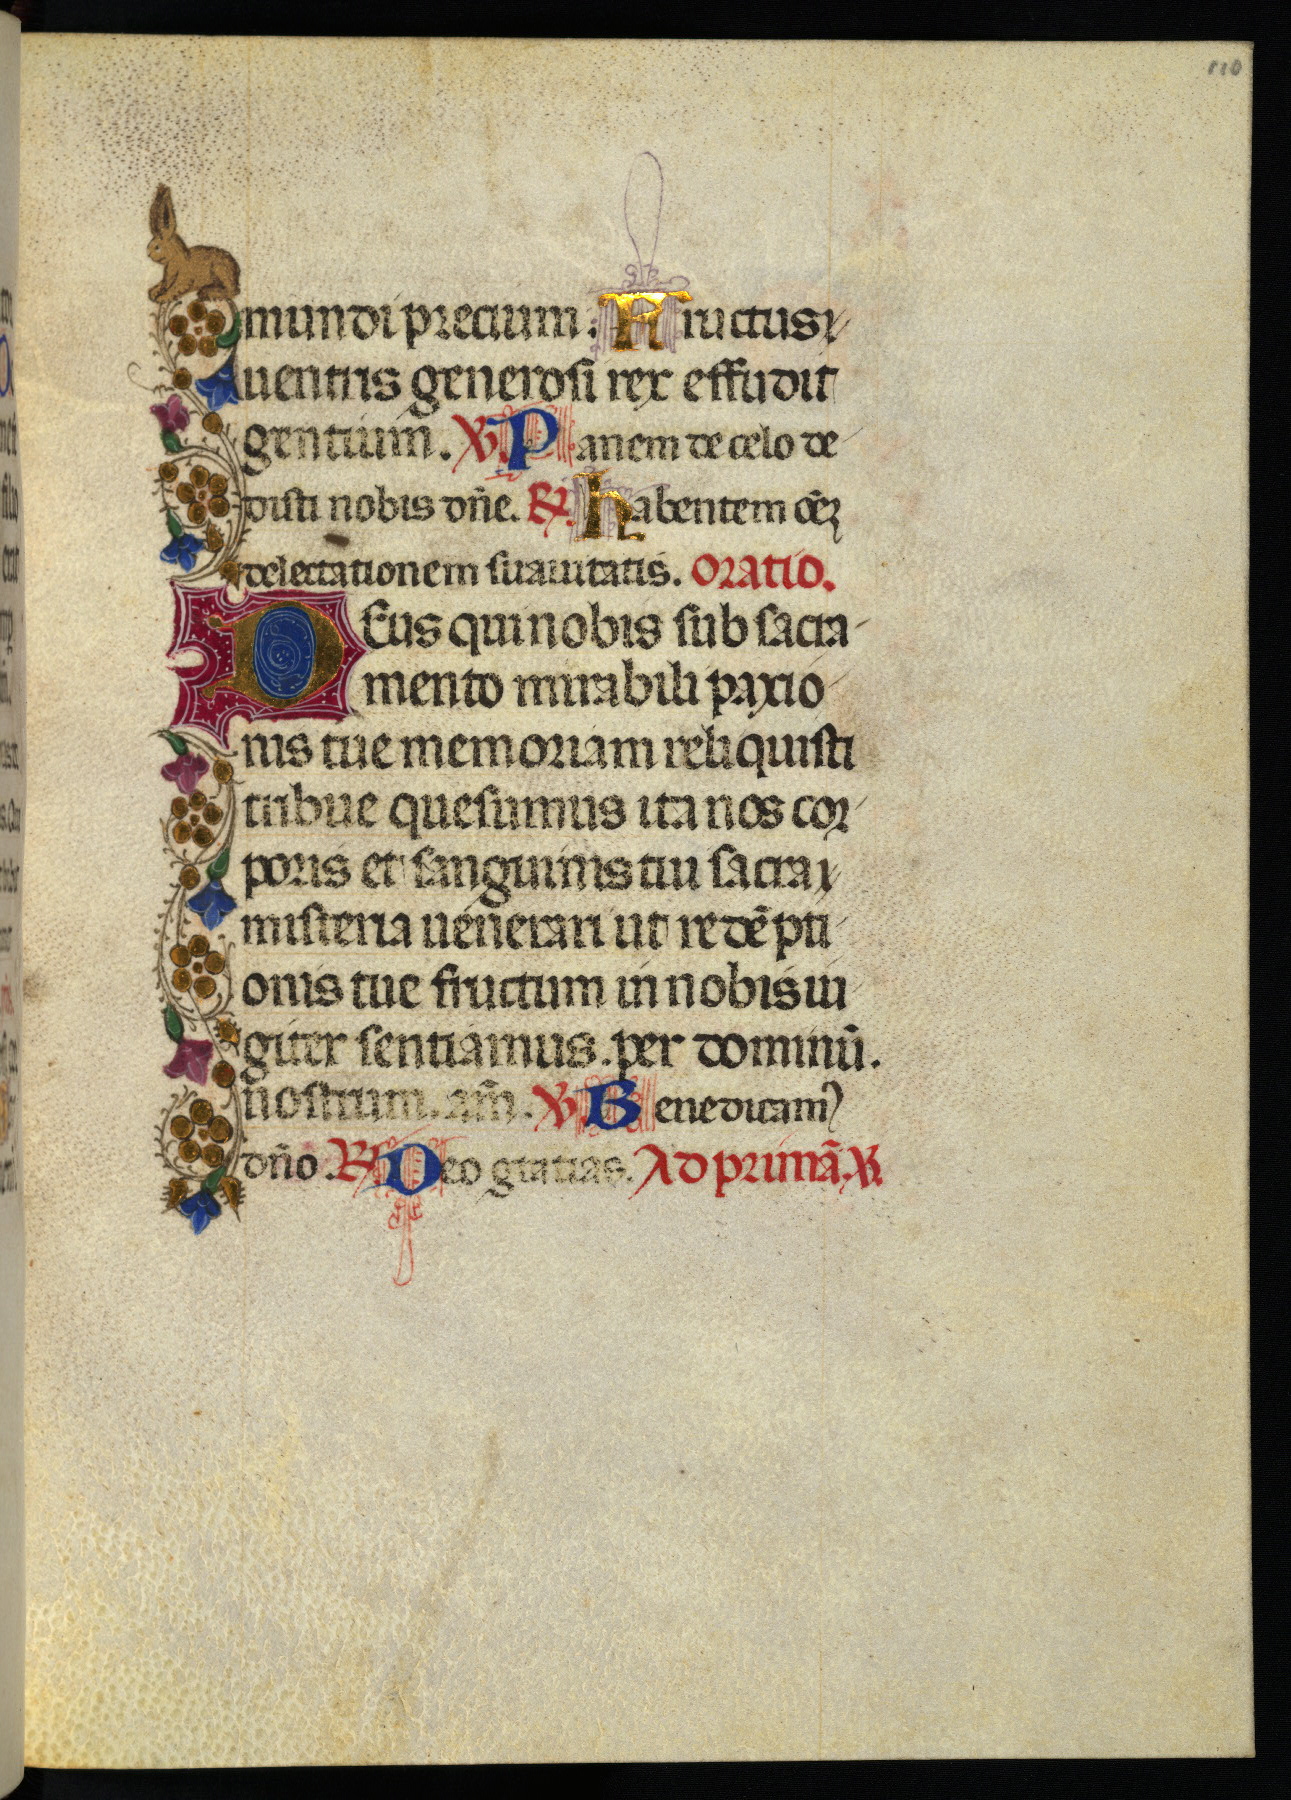 110
mundi precium. Fructus
uentris generosi rex effudit
gentium. V. Panem de celo de-
disti nobis dñe. R. habentem oēz
delectationem suauitatis. Oratio.
DEus qui nobis sub sacra-
mento mirabili paxio
nis tue memoriam reliquisti
tribue quesumus ita nos cor-
poris et sanguinis tui sacra
misteria uenerari ut redēpti
onis tue fructum in nobis iu
giter sentiamus. per dominū.
nostrum. am̃. V. Benedicam9
dño. R. Deo gratias. Ad primā. V.